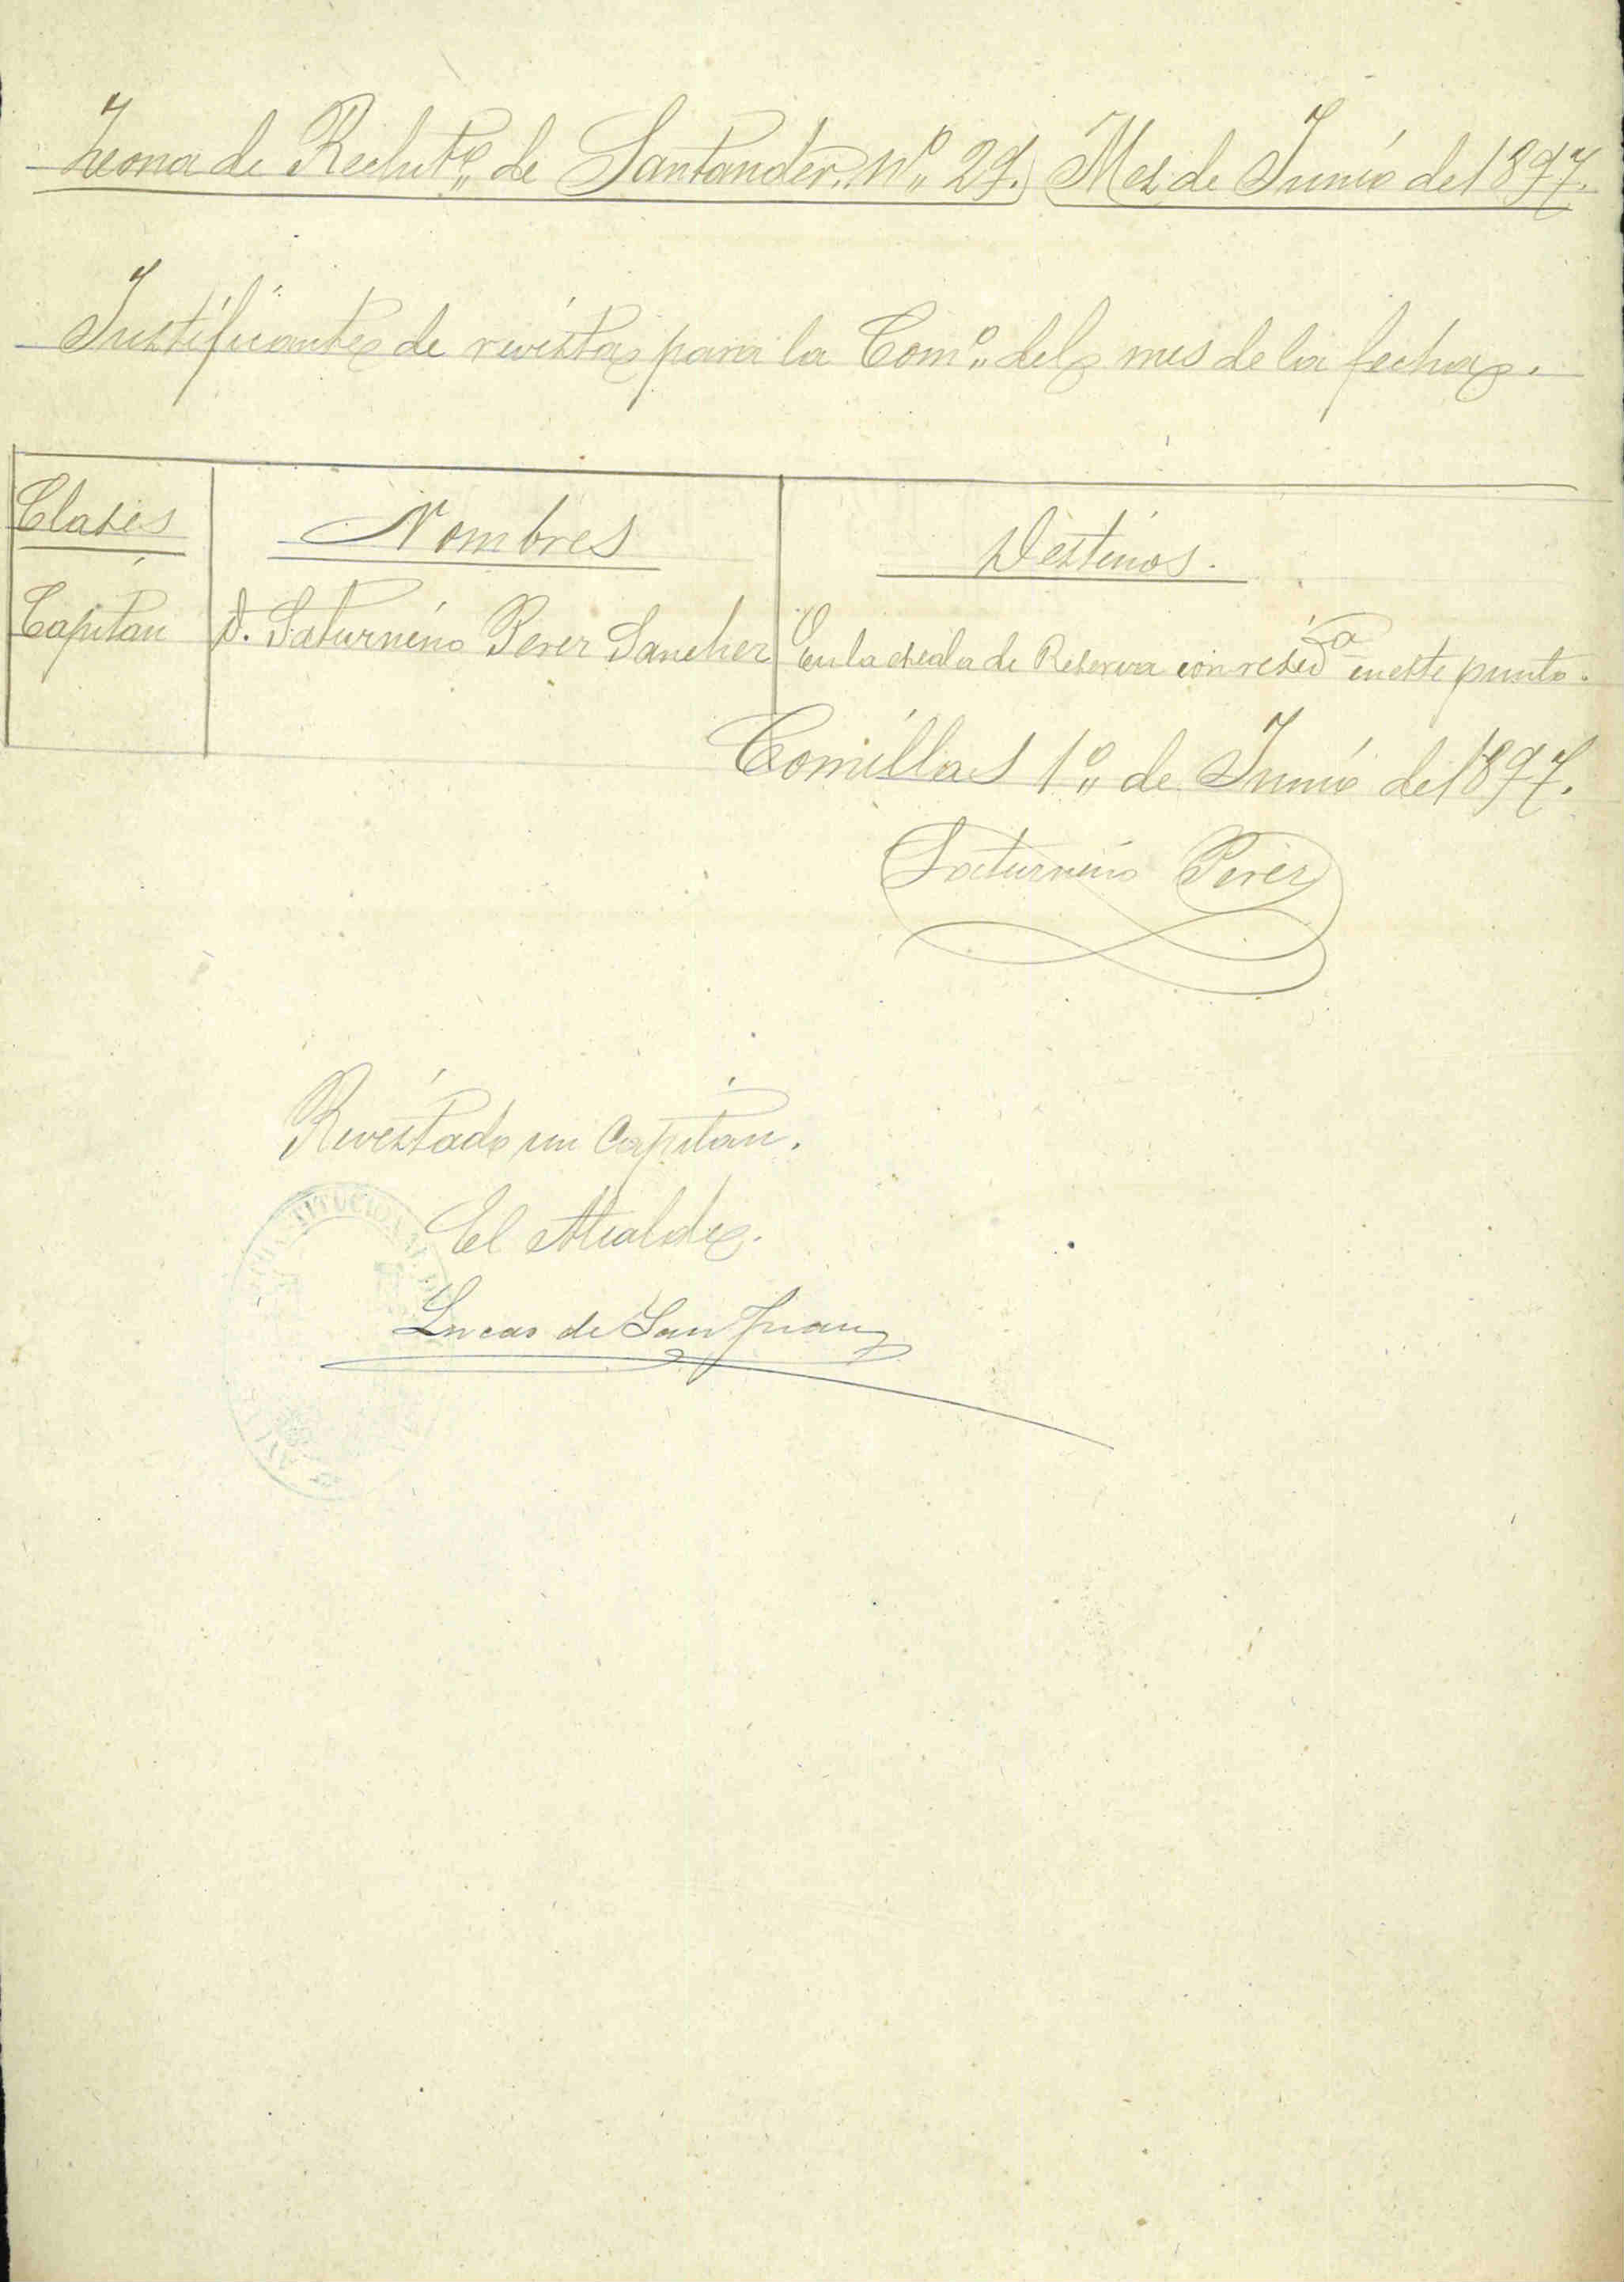 Zona de Reclutº de Santander Nº 29. Mes de Junio de 1897.
Justificante de revista para la Comº del mes de la fecha.
Clases Nombres Destinos.
Capitán D. Saturnino Perez Sanchez En la escala de Reserva con residª en este punto.
Comillas 1º de Junio de 1897.
Saturnino Perez
Revistado un Capitán.
El Alcalde.
Lucas de San Juan